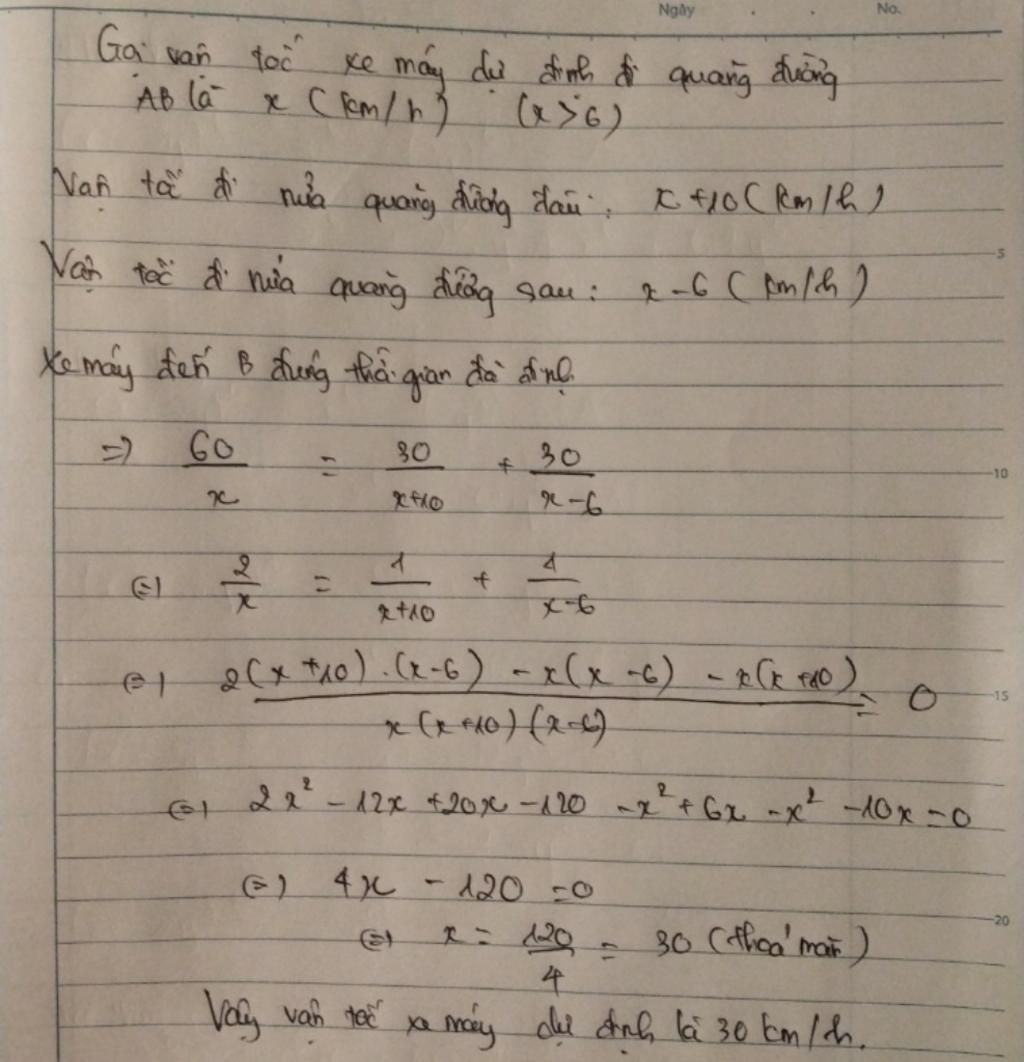 Ngày . . No.
Gọi vận tốc xe máy dự định đi quãng đường
AB là x (km/h) (x > 6)
Vận tốc đi nửa quãng đường đầu: x + 10 (km/h)
5
Vận tốc đi nửa quãng đường sau: x - 6 (km/h)
Xe máy đến B đúng thời gian đã định
=> 60/x = 30/(x+10) + 30/(x-6)
10
(=) 2/x = 1/(x+10) + 1/(x-6)
(=) (2(x+10).(x-6) - x(x-6) - x(x+10))/(x(x+10)(x-6)) = 0
15
(=) 2x² - 12x + 20x - 120 - x² + 6x - x² - 10x = 0
(=) 4x - 120 = 0
20
(=) x = 120/4 = 30 (thoả mãn)
Vậy vận tốc xe máy dự định là 30 km/h.